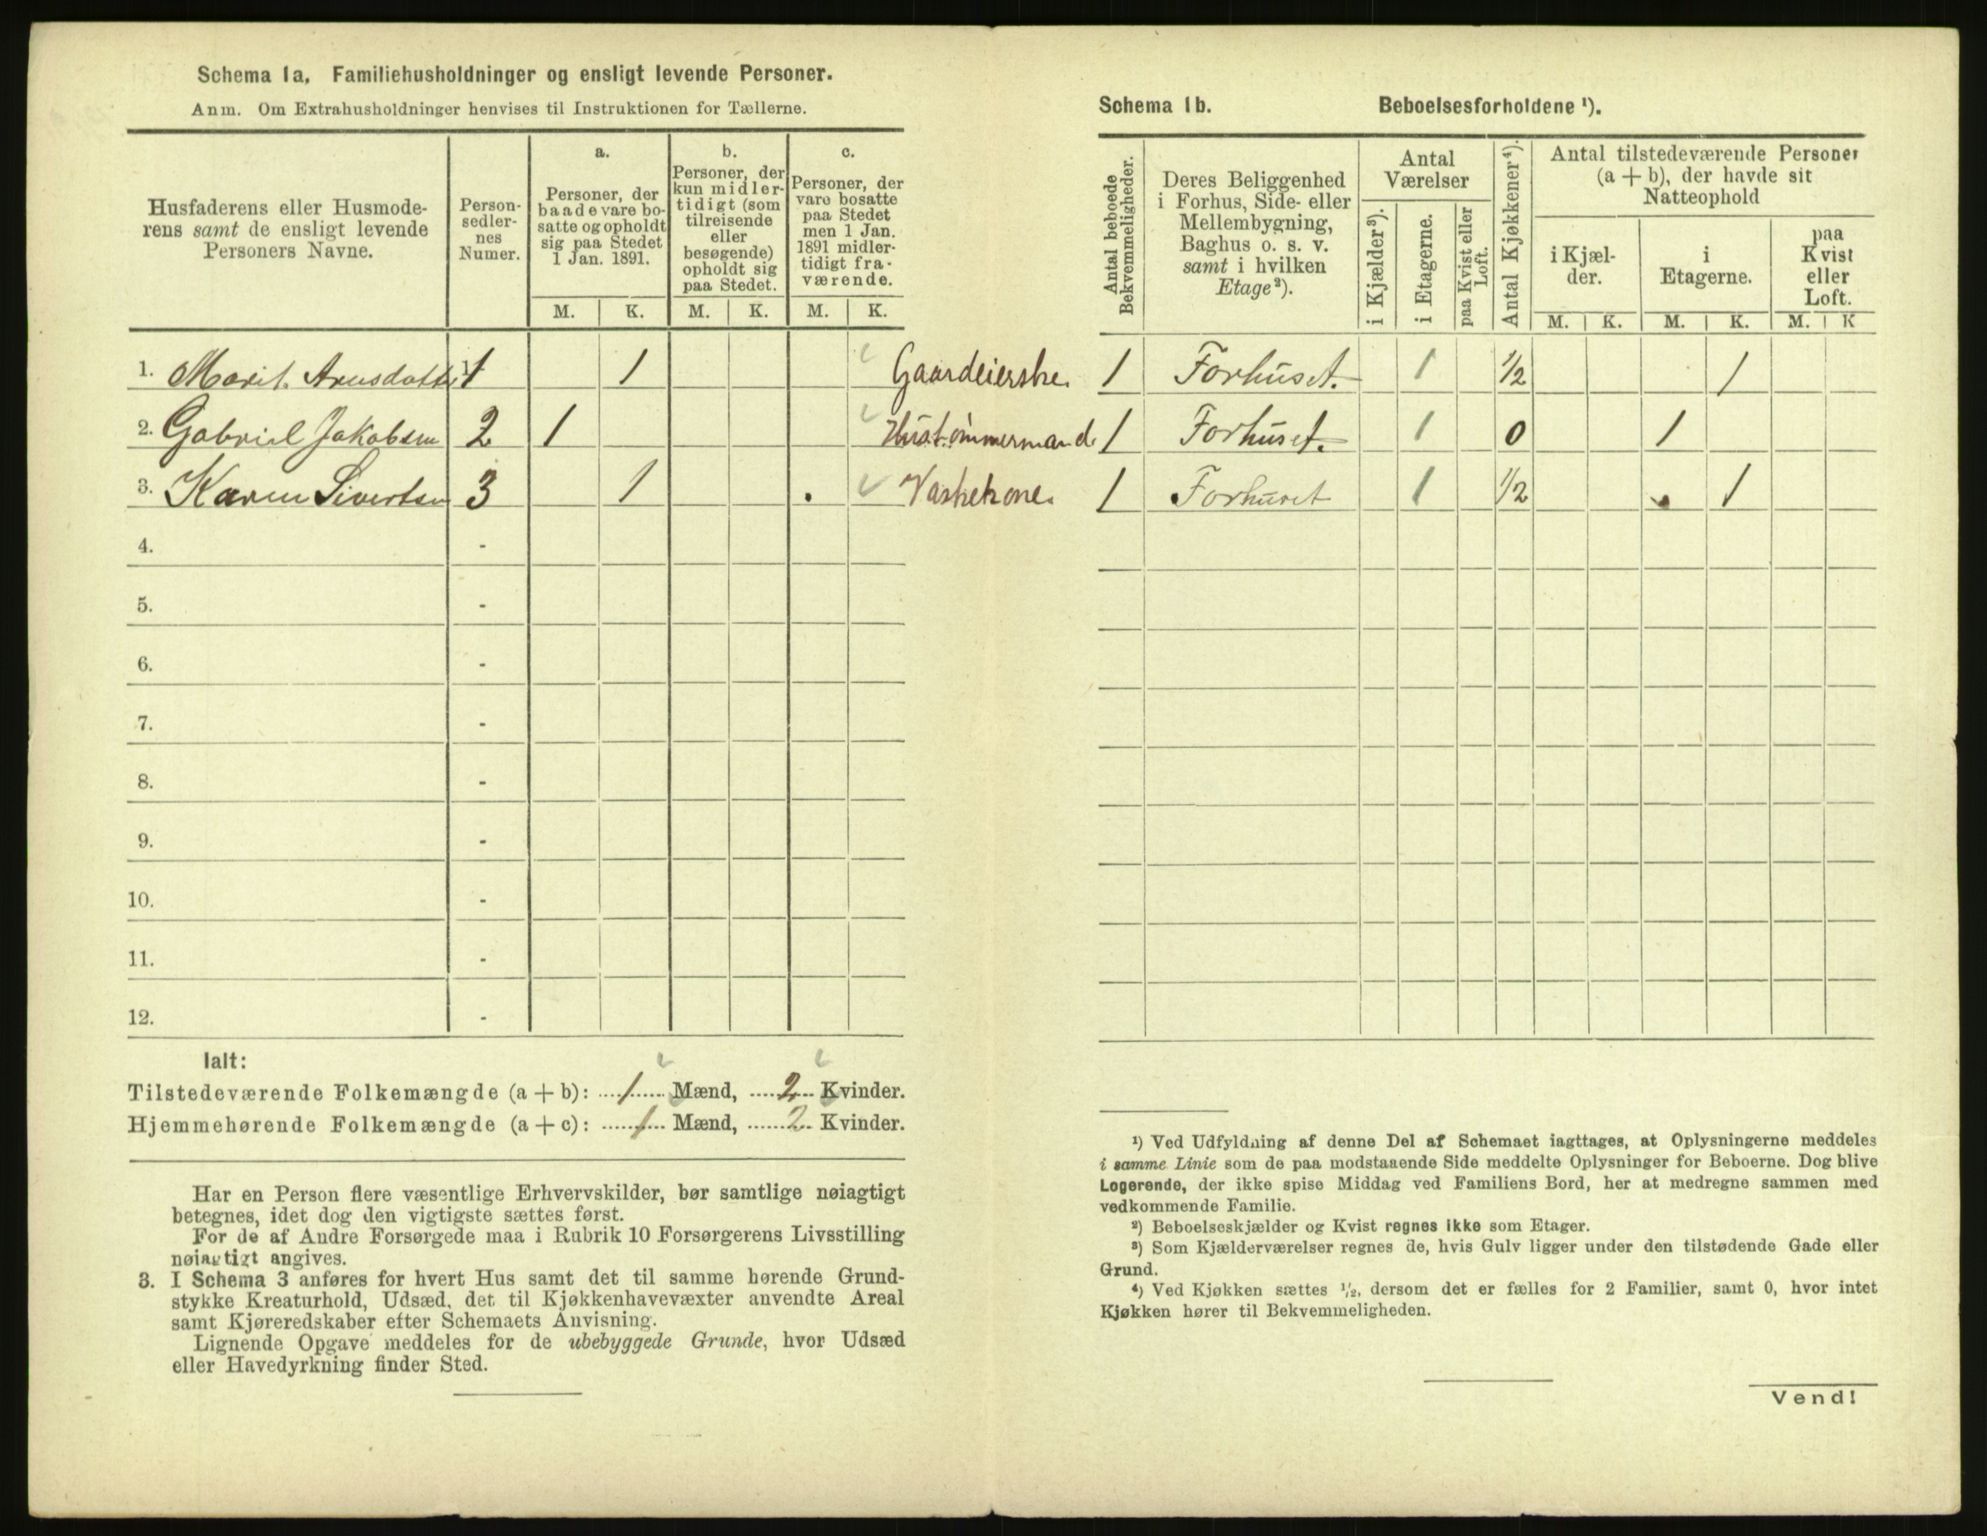 Schema 1a. Familiehusholdninger og ensligt levende Personer.
Anm. Om Extrahusholdninger henvises til Instruktionen for Tællerne.
Husfaderens eller Husmoderens samt de ensligt levende Personers Navne.
Person-sedler-nes Numer.
a.
Personer, der baade vare bosatte og opholdt sig paa Stedet 1 Jan. 1891.
b.
Personer, der kun midlertidigt (som tilreisende eller besøgende) opholdt sig paa Stedet.
c.
Personer, der vare bosatte paa Stedet men 1 Jan. 1891 midlertidigt fraværende.
M. K. M. K. M. K.
1. Marit Arnsdatter 1 1 Gaardeierske.
2. Gabriel Jakobsen 2 1 Hustømmermand.
3. Karen Sivertsen 3 1 Vaskekone.
4. -
5. -
6. -
7. -
8. -
9. -
10. -
11. -
12. -
Ialt:
Tilstedeværende Folkemængde (a + b): 1 Mænd, 2 Kvinder.
Hjemmehørende Folkemængde (a + c): 1 Mænd, 2 Kvinder.
Har en Person flere væsentlige Erhvervskilder, bør samtlige nøiagtigt
betegnes, idet dog den vigtigste sættes først.
For de af Andre Forsørgede maa i Rubrik 10 Forsørgerens Livsstilling
nøiagtigt angives.
3. I Schema 3 anføres for hvert Hus samt det til samme hørende Grund-
stykke Kreaturhold, Udsæd, det til Kjøkkenhavevæxter anvendte Areal
samt Kjøreredskaber efter Schemaets Anvisning.
Lignende Opgave meddeles for de ubebyggede Grunde, hvor Udsæd
eller Havedyrkning finder Sted.
Schema 1b. Beboelsesforholdene ¹).
Antal beboede Bekvemmeligheder.
Deres Beliggenhed i Forhus, Side- eller Mellembygning, Baghus o. s. v. samt i hvilken Etage²).
Antal Værelser
i Kjælder³).
i Etagerne.
paa Kvist eller Loft.
Antal Kjøkkener⁴).
Antal tilstedeværende Personer (a + b), der havde sit Natteophold
i Kjælder.
i Etagerne.
paa Kvist eller Loft.
M. K. M. K. M. K
1 Forhuset. 1 1/2 1
1 Forhuset. 1 0 1
1 Forhuset 1 1/2 1
¹) Ved Udfyldning af denne Del af Schemaet iagttages, at Oplysningerne meddeles
i samme Linie som de paa modstaaende Side meddelte Oplysninger for Beboerne. Dog blive
Logerende, der ikke spise Middag ved Familiens Bord, her at medregne sammen med
vedkommende Familie.
²) Beboelseskjælder og Kvist regnes ikke som Etager.
³) Som Kjælderværelser regnes de, hvis Gulv ligger under den tilstødende Gade eller
Grund.
⁴) Ved Kjøkken sættes ½, dersom det er fælles for 2 Familier, samt 0, hvor intet
Kjøkken hører til Bekvemmeligheden.
Vend!